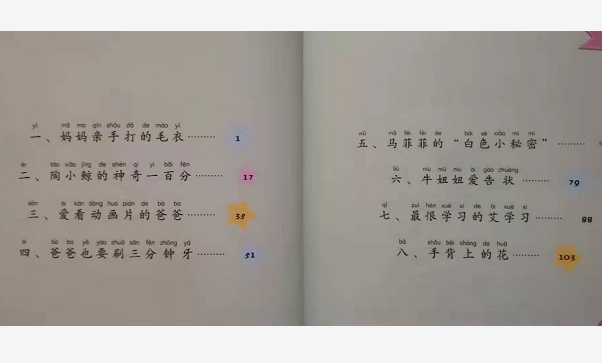 yī mā ma qīn shǒu dǎ de máo yī
一、妈妈亲手打的毛衣……… 1
èr táo xiǎo jīng de shén qí yì bǎi fēn
二、陶小鲸的神奇一百分……… 17
sān ài kàn dòng huà piàn de bà ba
三、爱看动画片的爸爸……… 35
sì bà ba yě yào shuā sān fēn zhōng yá
四、爸爸也要刷三分钟牙……… 51
wǔ mǎ fēi fēi de bái sè xiǎo mì mì
五、马菲菲的“白色小秘密”………
liù niú niū niu ài gào zhuàng
六、牛妞妞爱告状……… 79
qī zuì hèn xué xí de ài xué xí
七、最恨学习的艾学习……… 88
bā shǒu bèi shàng de huā
八、手背上的花……… 103